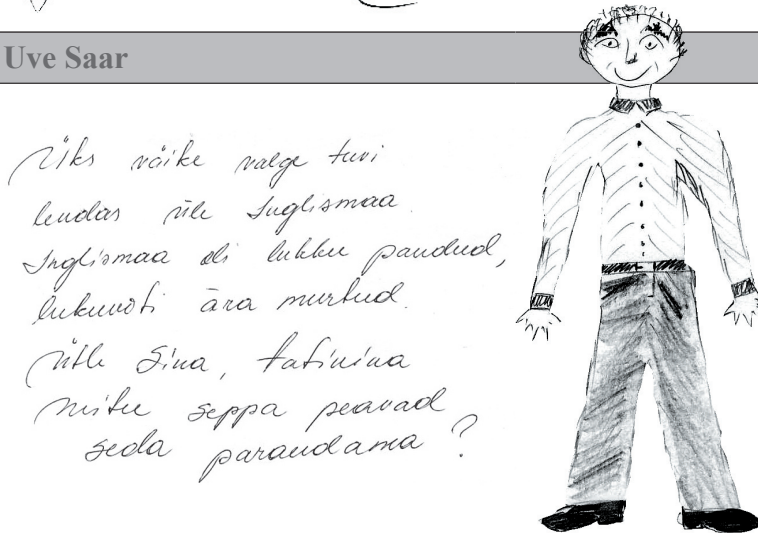 Uve Saar
Üks väike valge tuvi
lendas üle Inglismaa.
Inglismaa oli lukku pandud,
lukuvõti ära murtud.
Ütle Sina, tatinina
mitu seppa peavad
seda parandama?